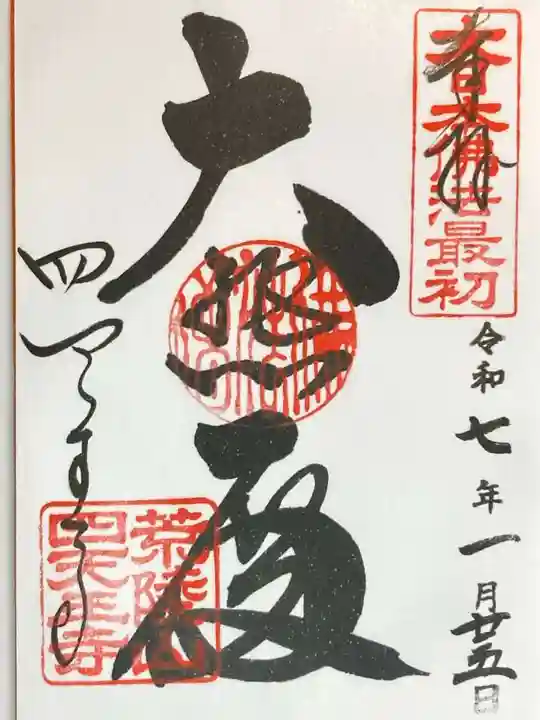 奉拝
大日本佛法最初
令和七年一月廿五日
大悲殿
四天王寺
荒陵山
四天王寺